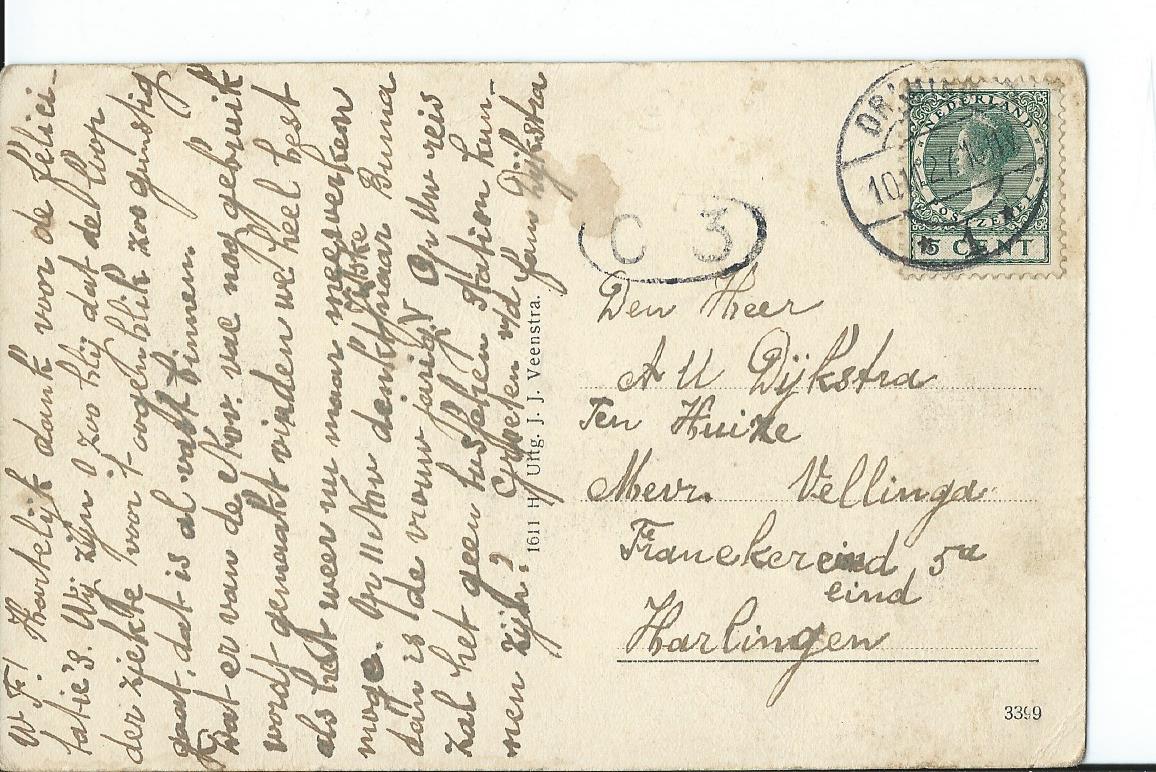 W F! Hartelijk dank voor de felici-
tatie's. Wij zijn O zoo blij dat de loop
der ziekte voor 't oogenblik zoo gunstig
gaat, dat is al vast binnen.
Dat er van de Nov. vac nog gebruik
wordt gemaakt vinden we heel best
als het weer nu maar meewerken
moge. Op 11 Nov denkt Jitske naar Buma
dan is de vrouw jarig. Op Uw reis
zal het geen tusschen station kun-
nen zijn? Groeten v/d fam Dijkstra
1611 H Uitg. J. J. Veenstra.
C 3
NEDERLAND
POSTZEGEL
5 CENT
Den Heer
A U Dijkstra
Ten Huize
Mevr. Vellinga
Franekereind 5a
eind
Harlingen
3399